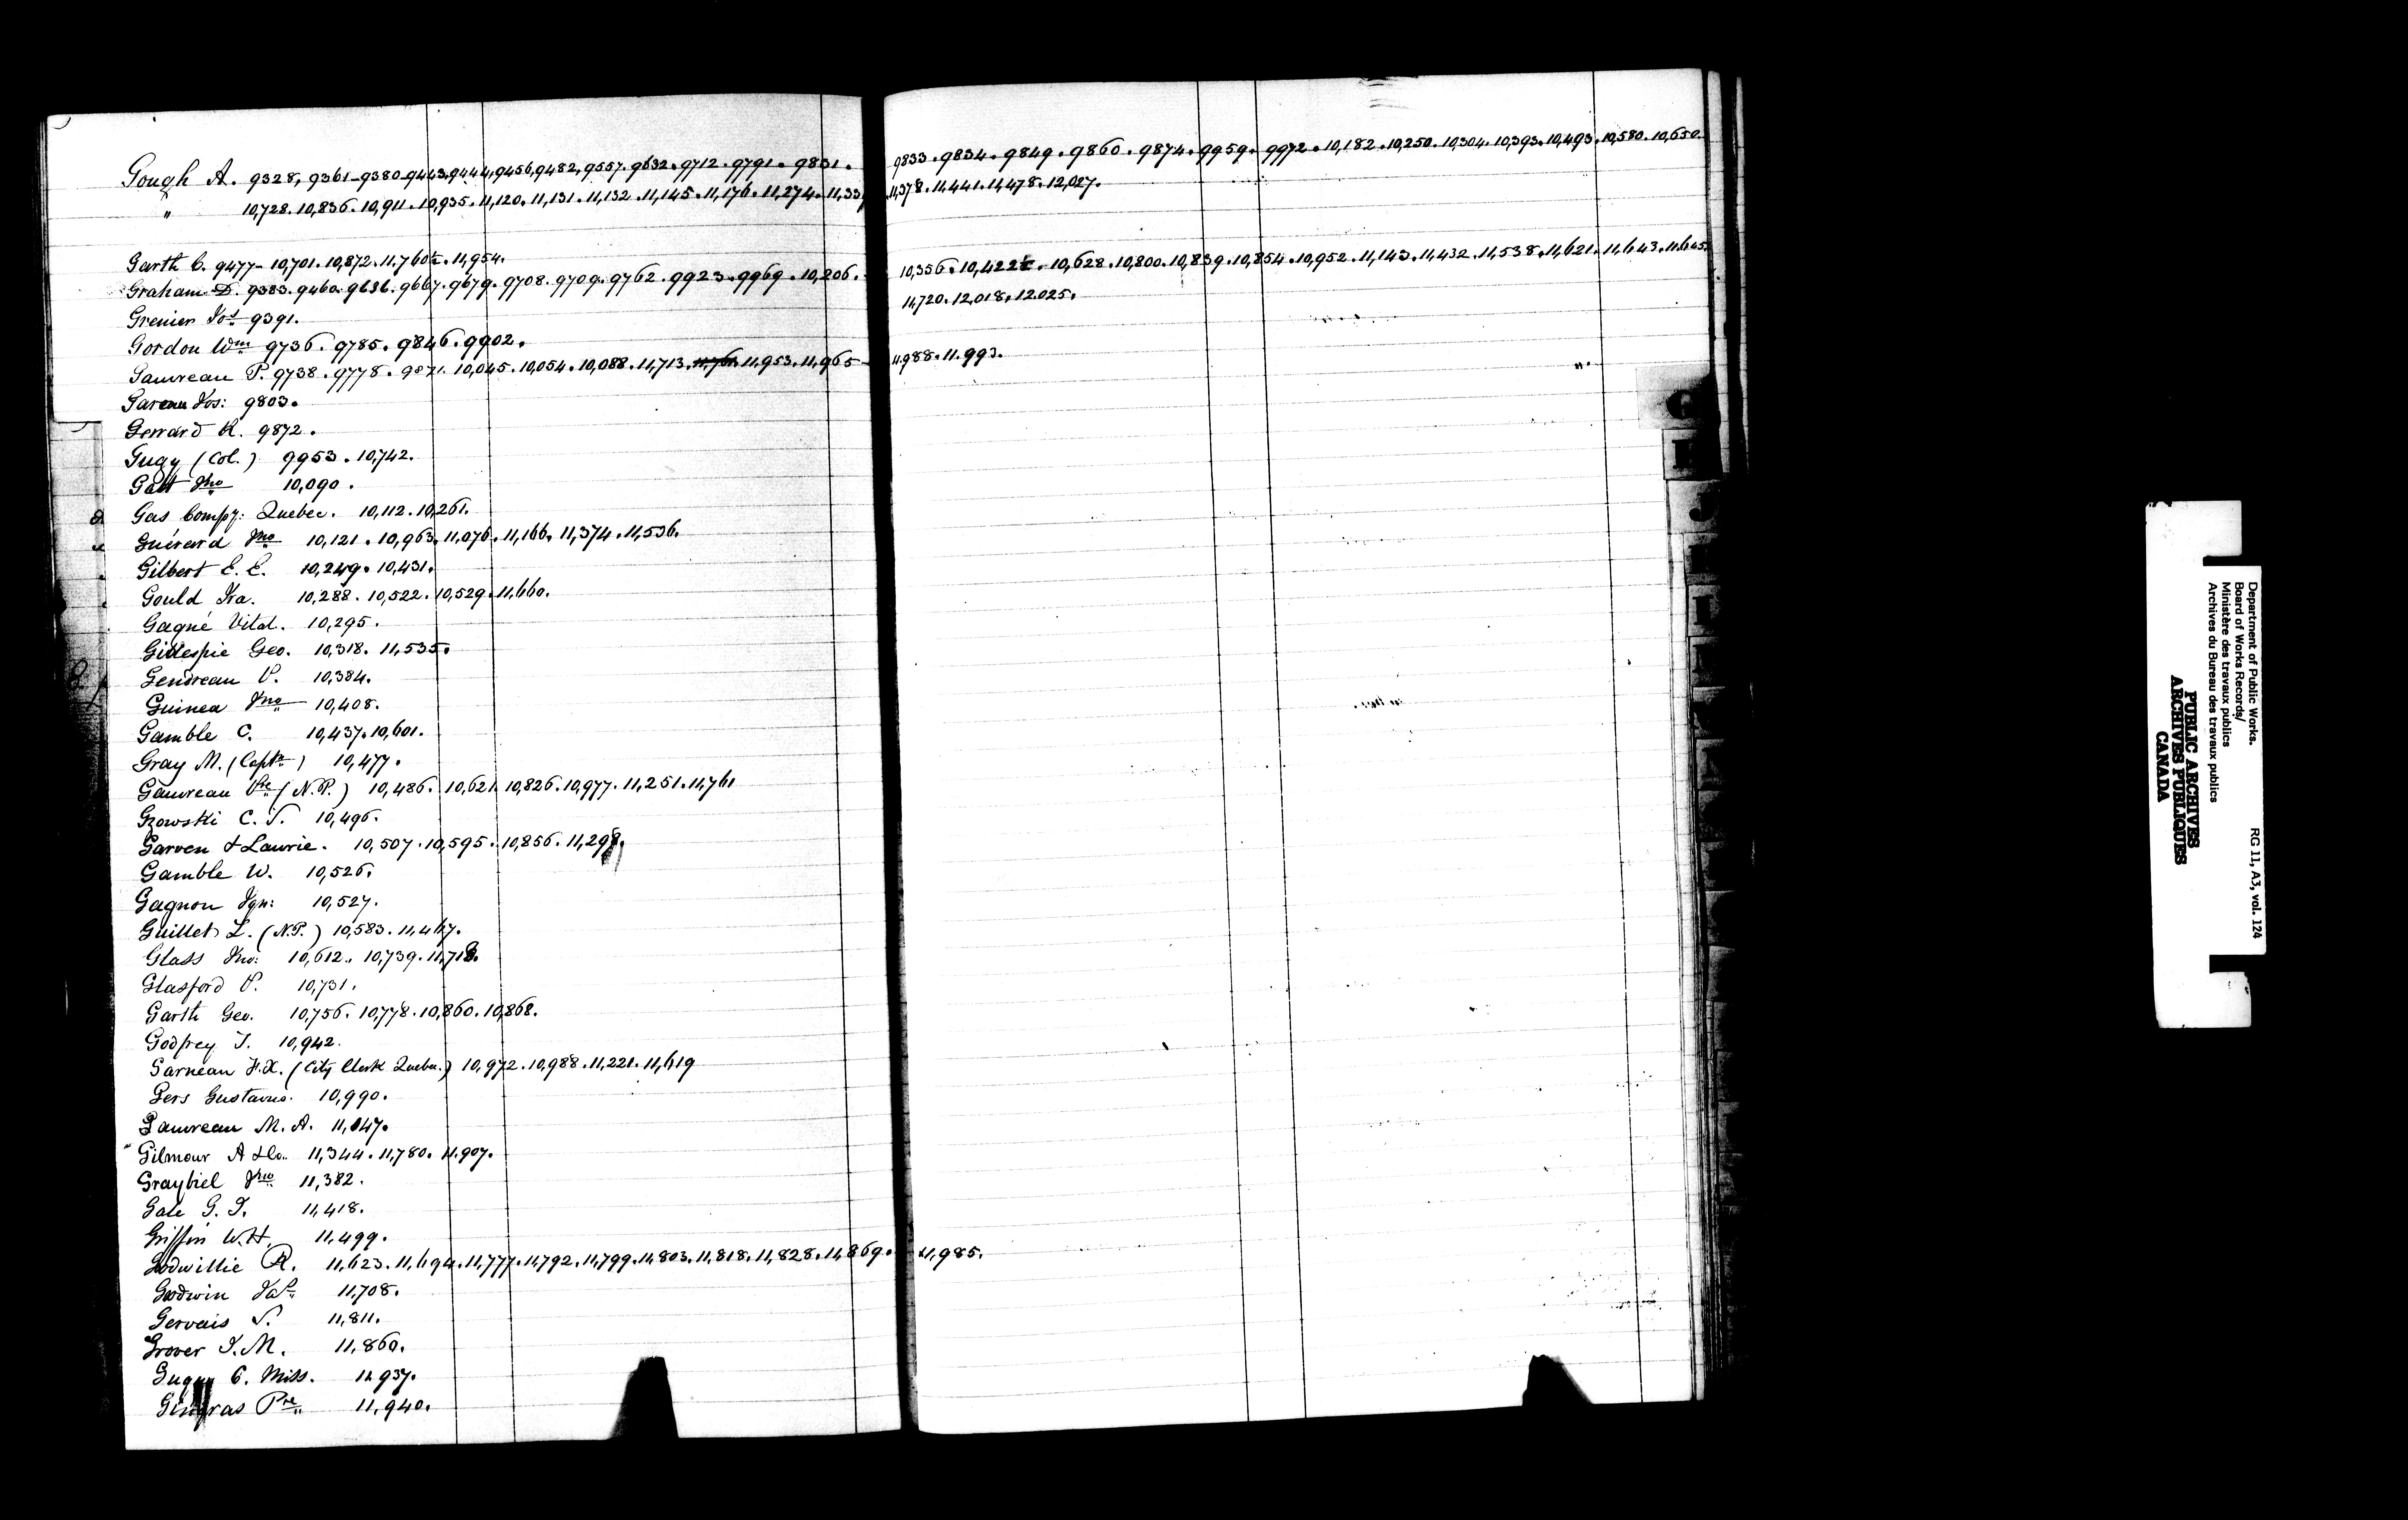 Gough A. 9328, 9361-9380-9443.9444,9456,9482,9557.9632.9712.9791.9831. 9833.9834.9849.9860.9874.9959.9972.10,182.10,250.10,304.10,393.10,493.10,580.10,650.
" 10,728.10,836.10,911.10,935.11,120.11,131.11,132.11,145.11,176.11,274.11,33 11,378.11,441.11,478.12,027.
Garth C. 9477-10,701.10,872.11,760½.11,954.
Graham D. 9383.9460.9636.9667.9679.9708.9709.9762.9923.9969.10,206. 10,356.10,422½.10,628.10,800.10,839.10,854.10,952.11,143.11,432.11,538.11,621.11,643.11,645.
11,720.12,018.12,025.
Grenier Jos 9391.
Gordon Wm 9736.9785.9846.9902.
Gauvreau P. 9738.9778.9871.10,045.10,054.10,088.11,713.11,761.11,953.11,965- 11.988.11.993.
Gareau Jos: 9803.
Gerrard R. 9872.
Gugy (Col.) 9953.10,742.
Galt Jno 10,090.
Gas Compy: Quebec. 10,112.10,261.
Guérard Jno 10,121.10,963.11,076.11,166.11,374.11,536.
Gilbert E. E. 10,249.10,431.
Gould Ira. 10,288.10,522.10,529.11,660.
Gagné Vital. 10,295.
Gillespie Geo. 10,318.11,535.
Gendreau P. 10,384.
Guinea Jno 10,408.
Gamble C. 10,437.10,601.
Gray M. (Captn) 10,477.
Gauvreau Pre (N.P.) 10,486.10,621.10,826.10,977.11,251.11,761
Gzowski C. S. 10,496.
Garven & Laurie. 10,507.10,595.10,856.11,298.
Gamble W. 10,526.
Gagnon Ign: 10,527.
Guillet L. (N.P.) 10,583.11,467.
Glass Jno: 10,612.10,739.11,718.
Glasford P. 10,731.
Garth Geo. 10,756.10,778.10,860.10,868.
Godfrey T. 10,942.
Garneau F.X. (City Clerk Quebec.) 10,972.10,988.11,221.11,619
Gers Gustavus. 10,990.
Gauvreau M. A. 11,047.
Gilmour A & Co. 11,344.11,780.11.907.
Graybiel Jno 11,382.
Gale G. T. 11,418.
Griffin W.H. 11,499.
Godwillie R. 11,623.11,694.11,777.11,792.11,799.11,803.11,818.11,828.11,869. 11,985.
Godwin Jas 11,708.
Gervais S. 11,811.
Grover T. M. 11,860.
Gugy C. Miss. 11.937.
Gingras Pre 11,940.
G
J
Department of Public Works.
Board of Works Records/
Ministère des travaux publics
Archives du Bureau des travaux publics
RG 11, A3, vol. 124
PUBLIC ARCHIVES
ARCHIVES PUBLIQUES
CANADA